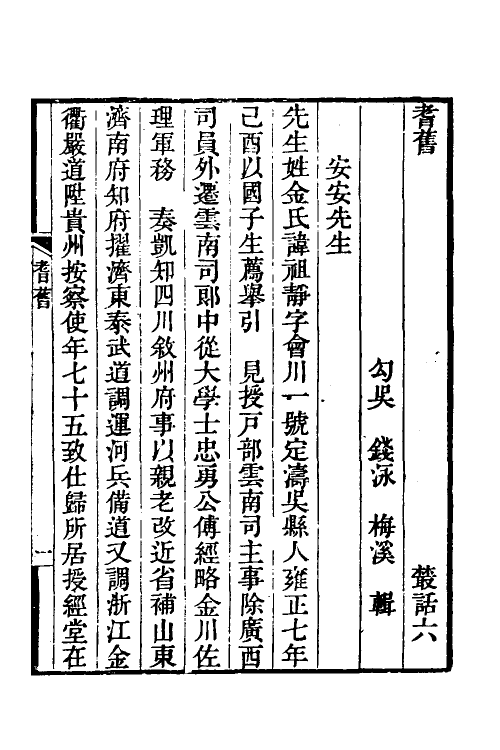 耆舊　叢話六
勾吳　錢泳　梅溪　輯
安安先生
先生姓金氏諱祖靜字會川一號定濤吳縣人雍正七年
己酉以國子生薦舉引　見授戶部雲南司主事除廣西
司員外遷雲南司郎中從大學士忠勇公傅經略金川佐
理軍務　奏凱知四川敘州府事以親老改近省補山東
濟南府知府擢濟東泰武道調運河兵備道又調浙江金
衢嚴道陞貴州按察使年七十五致仕歸所居授經堂在
耆舊
一